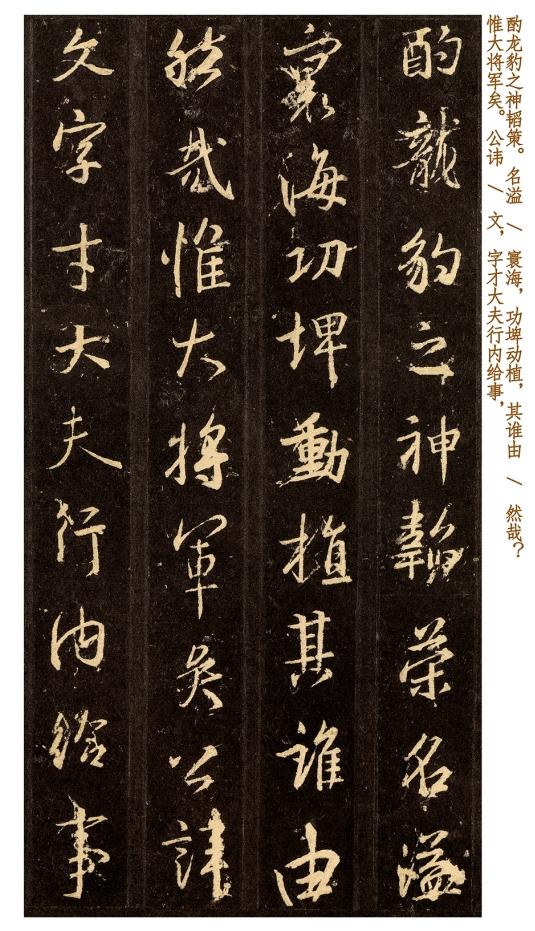 酌龙豹之神韬策。名溢 \ 寰海，功埤动植，其谁由 \ 然哉？
惟大将军矣。公讳 \ 文，字才大夫行内给事，
酌龍豹之神韜策名溢
寰海功埤動植其誰由
然哉惟大將軍矣公諱
文字才大夫行內給事